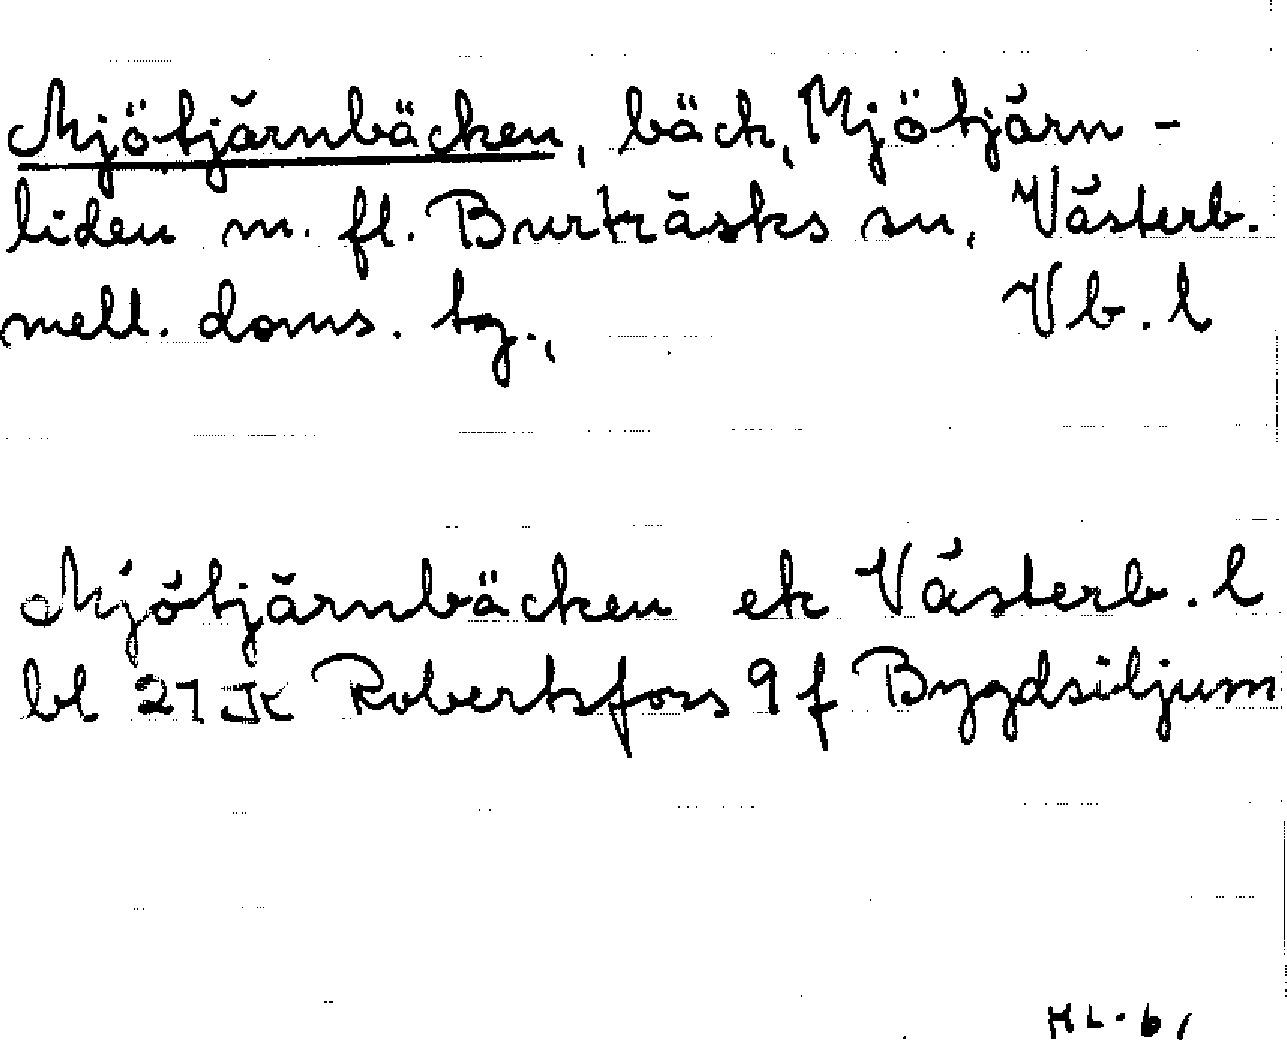 Mjötjärnbäcken, bäck, Mjötjärn-
liden m. fl. Burträsks sn, Västerb.
mell. doms. tg., Vb. l
Mjötjärnbäcken ek Västerb. l
bl 21 K Robertsfors 9 f Bygdsiljum
HL-61